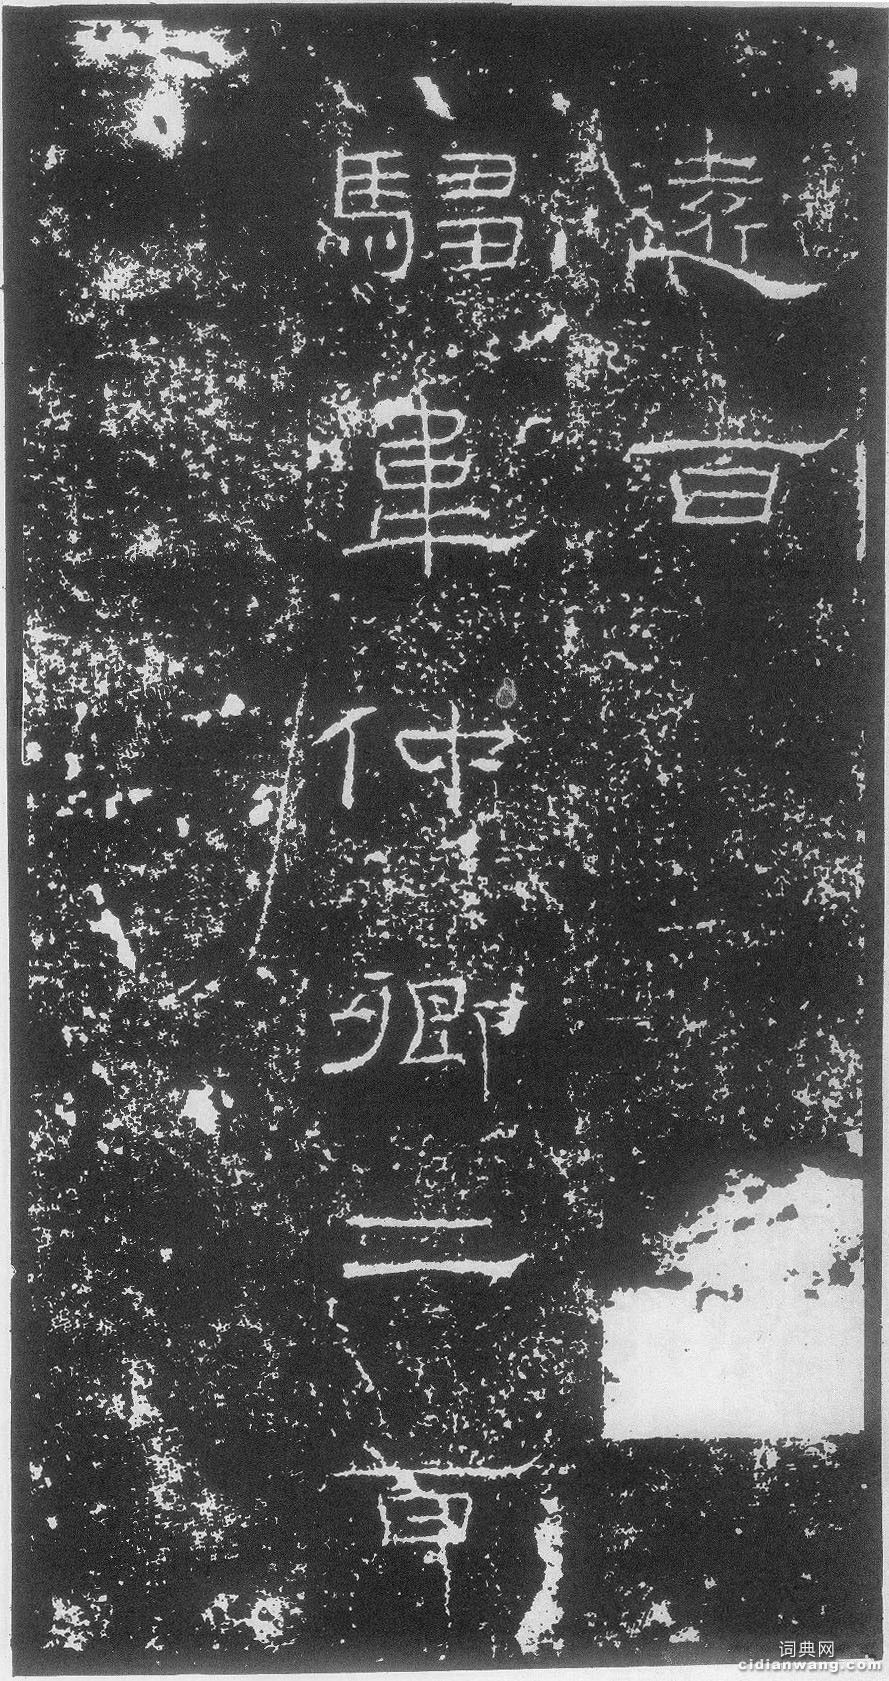 遠百
騶韋仲卿二百
词典网
cidianwang.com